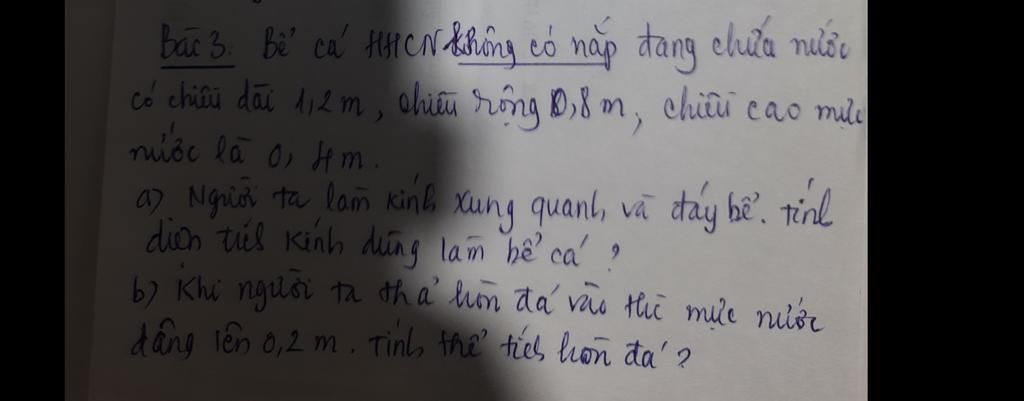 Bài 3: Bể cá HHCN không có nắp đang chứa nước
có chiều dài 1,2 m, chiều rộng 0,8 m, chiều cao mực
nước là 0,4m.
a) Người ta làm kính xung quanh và đáy bể. Tính
diện tích kính dùng làm bể cá ?
b) Khi người ta thả hòn đá vào thì mực nước
dâng lên 0,2 m. Tính thể tích hòn đá ?